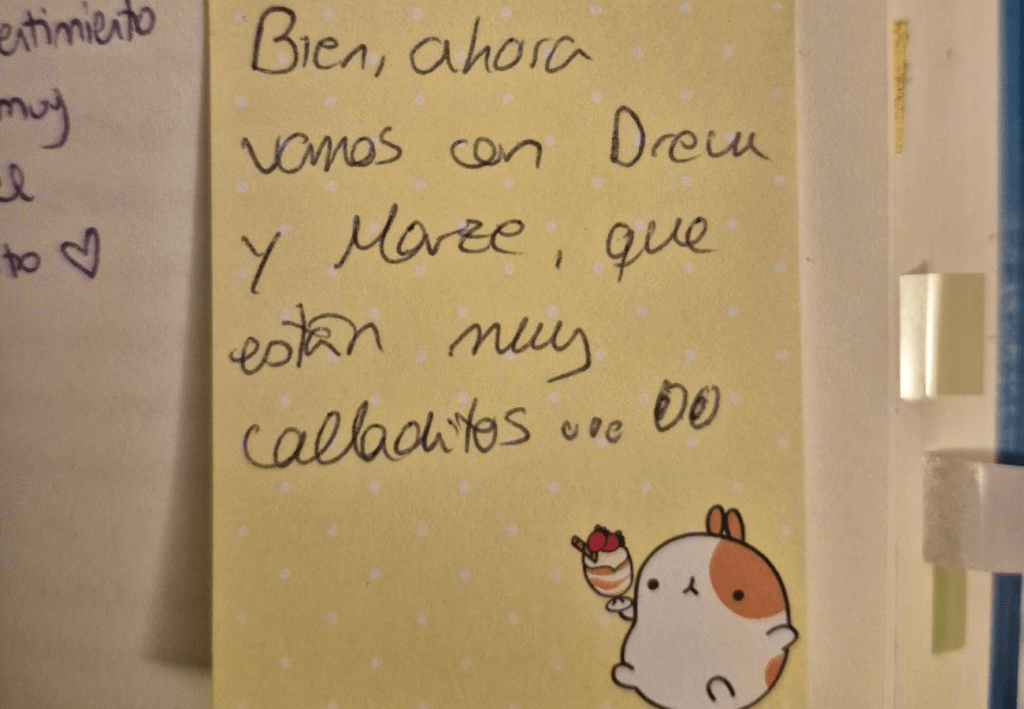 entimiento
muy
el
Bien, ahora
vamos con Drew
y Marze, que
están muy
calladitos ... 00